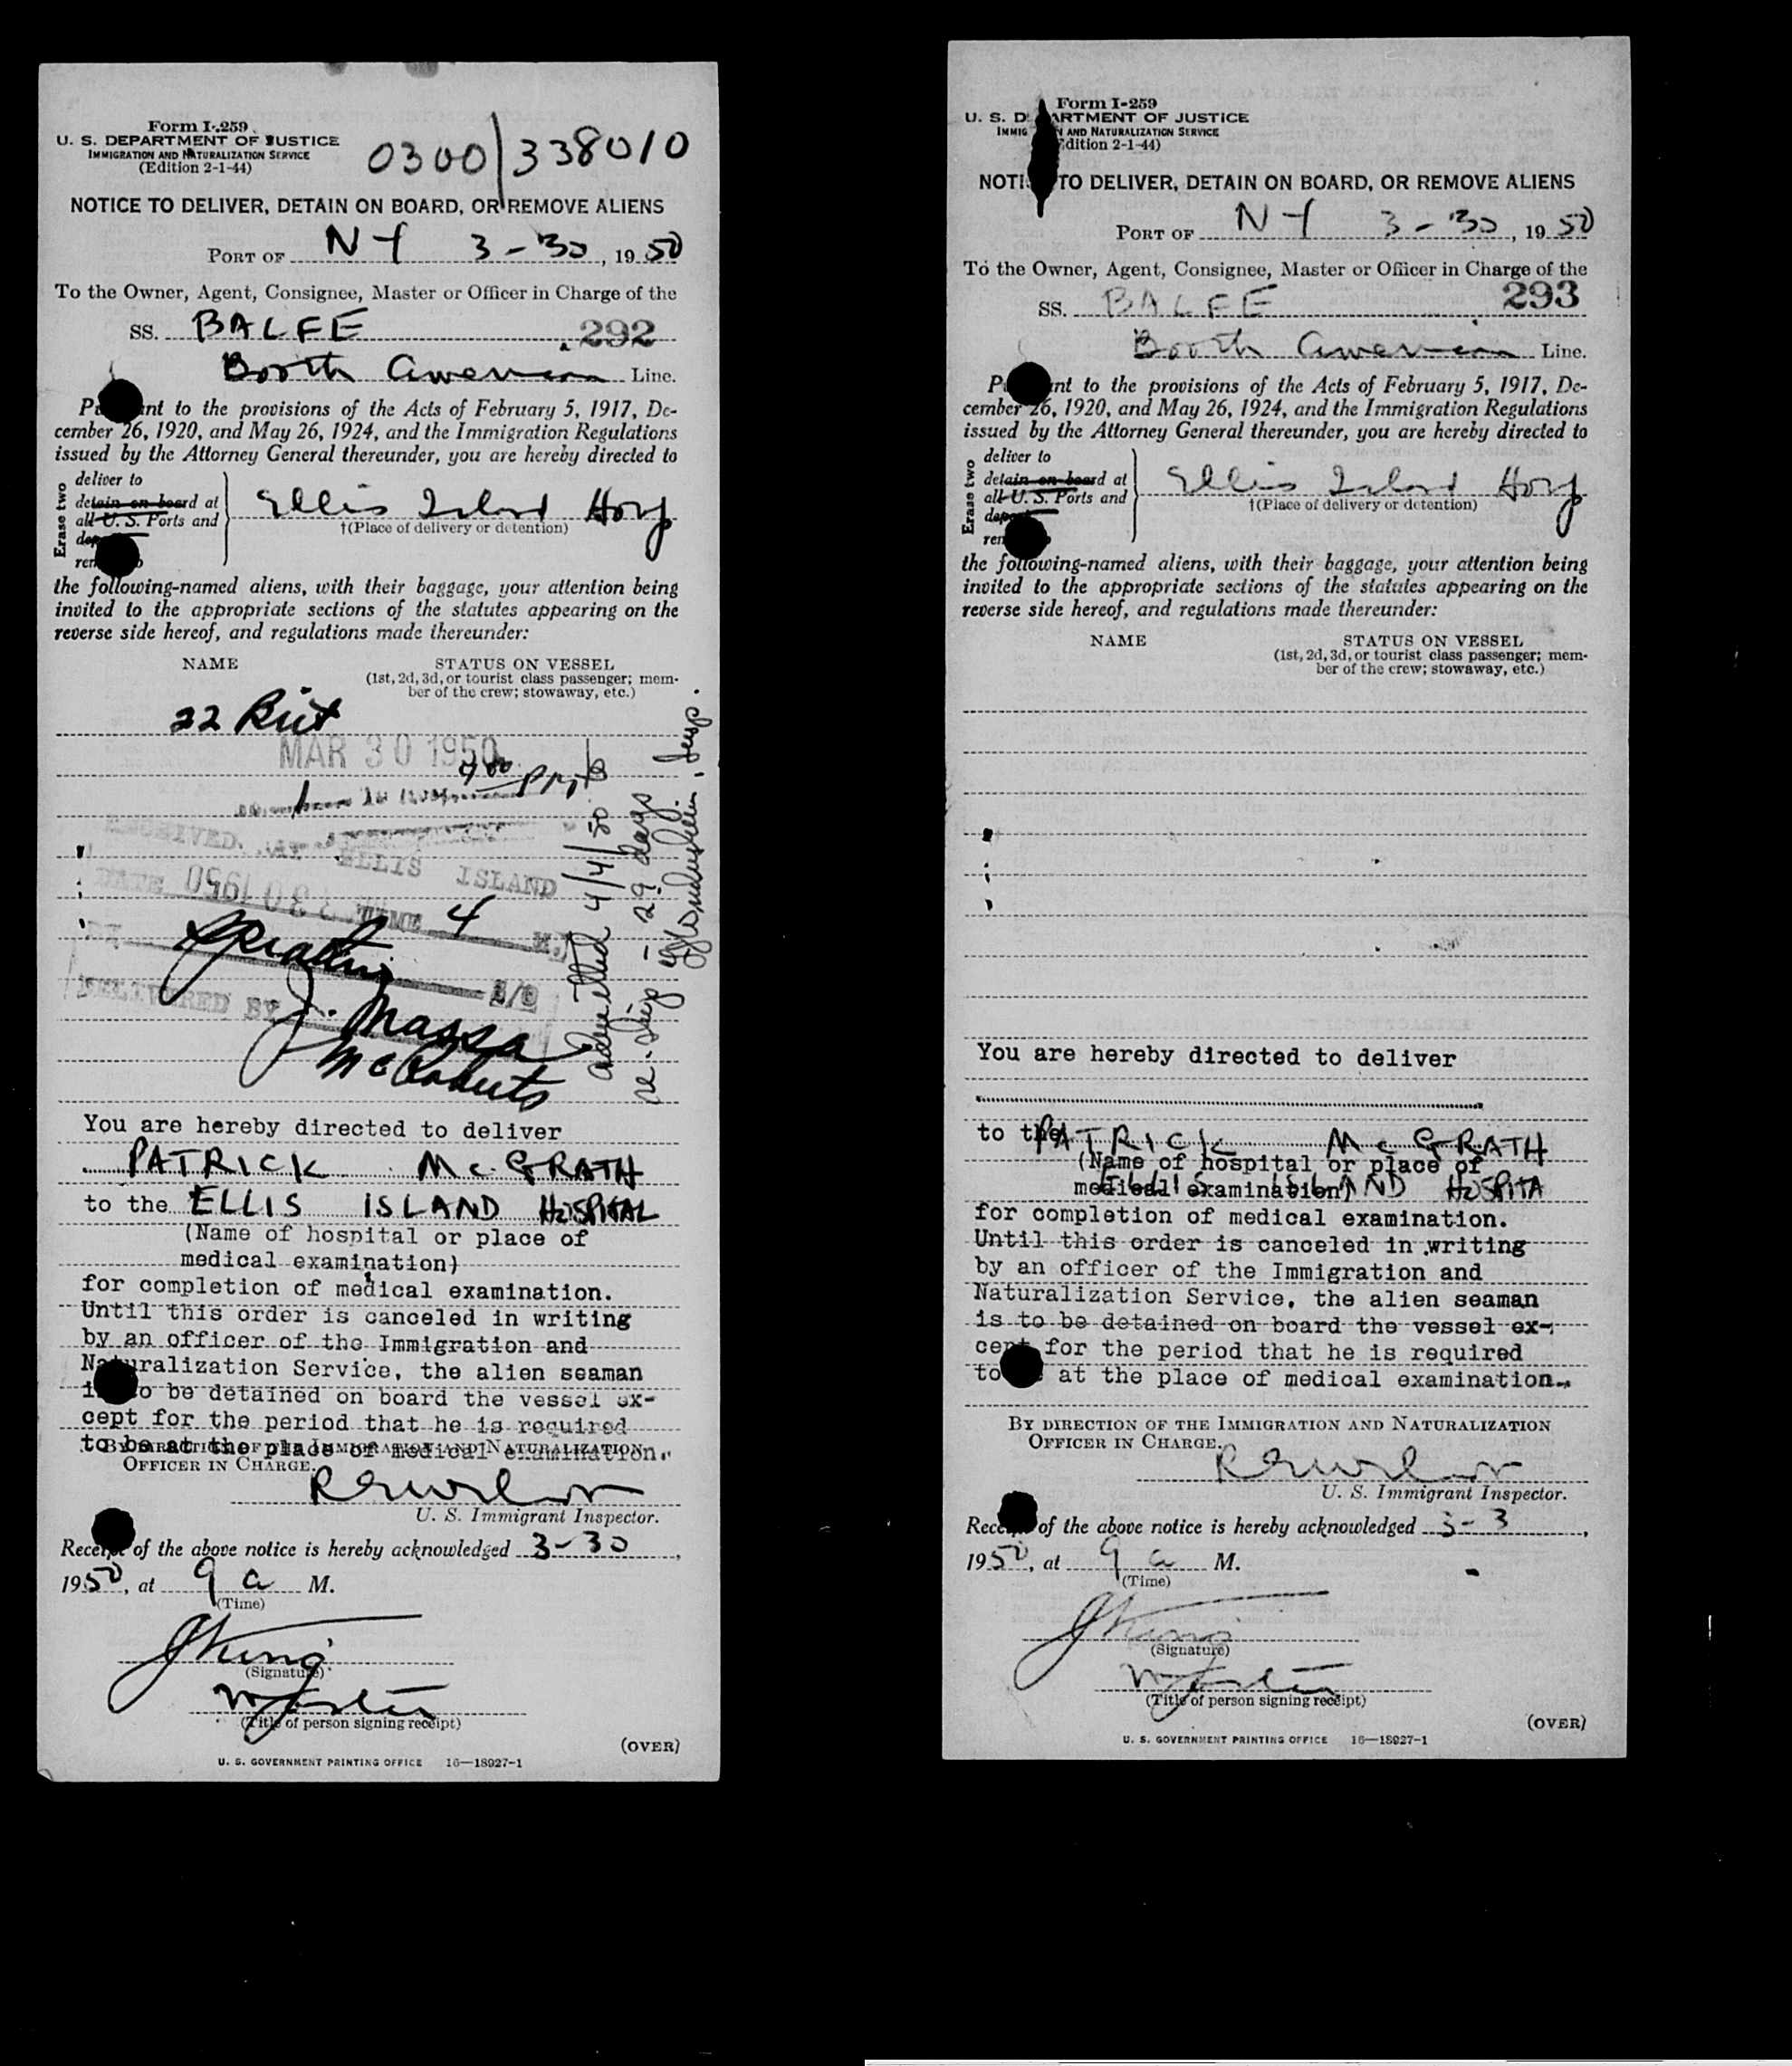 Form I-259
U. S. DEPARTMENT OF JUSTICE
IMMIGRATION AND NATURALIZATION SERVICE
(Edition 2-1-44)
0300/338010
NOTICE TO DELIVER, DETAIN ON BOARD, OR REMOVE ALIENS
PORT OF NY 3-30, 1950
To the Owner, Agent, Consignee, Master or Officer in Charge of the
SS. BALFE 292
Booth American Line.
Pu nt to the provisions of the Acts of February 5, 1917, De-
cember 26, 1920, and May 26, 1924, and the Immigration Regulations
issued by the Attorney General thereunder, you are hereby directed to
Erase two
deliver to
detain on board at
all U. S. Ports and
dep
rem o
Ellis Island Hosp
†(Place of delivery or detention)
the following-named aliens, with their baggage, your attention being
invited to the appropriate sections of the statutes appearing on the
reverse side hereof, and regulations made thereunder:
NAME STATUS ON VESSEL
(1st, 2d, 3d, or tourist class passenger; mem-
ber of the crew; stowaway, etc.)
22 Brit
MAR 30 1950
400 PM
RECEIVED AT ELLIS ISLAND
DATE MAR 30 1950 TIME 4 M.
DELIVERED BY
J. Massa
McRoberts
admitted 4/4/50
re. ship - 29 days
Insp.
You are hereby directed to deliver
PATRICK McGRATH
to the ELLIS ISLAND HOSPITAL
(Name of hospital or place of
medical examination)
for completion of medical examination.
Until this order is canceled in writing
by an officer of the Immigration and
Naturalization Service, the alien seaman
i o be detained on board the vessel ex-
cept for the period that he is required
to be at the place of medical examination.
BY DIRECTION OF THE IMMIGRATION AND NATURALIZATION
OFFICER IN CHARGE.
U. S. Immigrant Inspector.
Receipt of the above notice is hereby acknowledged 3-30,
1950, at 9 a M.
(Time)
J King
(Signature)
Master
(Title of person signing receipt)
(OVER)
U. S. GOVERNMENT PRINTING OFFICE 16—18927-1
Form I-259
U. S. D ARTMENT OF JUSTICE
IMMIG N AND NATURALIZATION SERVICE
dition 2-1-44)
NOTI TO DELIVER, DETAIN ON BOARD, OR REMOVE ALIENS
PORT OF NY 3-30, 1950
To the Owner, Agent, Consignee, Master or Officer in Charge of the
293
SS. BALFE
Booth American Line.
Pu nt to the provisions of the Acts of February 5, 1917, De-
cember 26, 1920, and May 26, 1924, and the Immigration Regulations
issued by the Attorney General thereunder, you are hereby directed to
Erase two
deliver to
detain on board at
all U. S. Ports and
dep
rem
Ellis Island Hosp
†(Place of delivery or detention)
the following-named aliens, with their baggage, your attention being
invited to the appropriate sections of the statutes appearing on the
reverse side hereof, and regulations made thereunder:
NAME STATUS ON VESSEL
(1st, 2d, 3d, or tourist class passenger; mem-
ber of the crew; stowaway, etc.)
You are hereby directed to deliver
to the PATRICK McGRATH
(Name of hospital or place of
medical examination) ELLIS ISLAND HOSPITA
for completion of medical examination.
Until this order is canceled in writing
by an officer of the Immigration and
Naturalization Service, the alien seaman
is to be detained on board the vessel ex-
cept for the period that he is required
to at the place of medical examination.
BY DIRECTION OF THE IMMIGRATION AND NATURALIZATION
OFFICER IN CHARGE.
U. S. Immigrant Inspector.
Receipt of the above notice is hereby acknowledged 3-3,
1950, at 9 a M.
(Time)
J King
(Signature)
Master
(Title of person signing receipt)
(OVER)
U. S. GOVERNMENT PRINTING OFFICE 16—18927-1